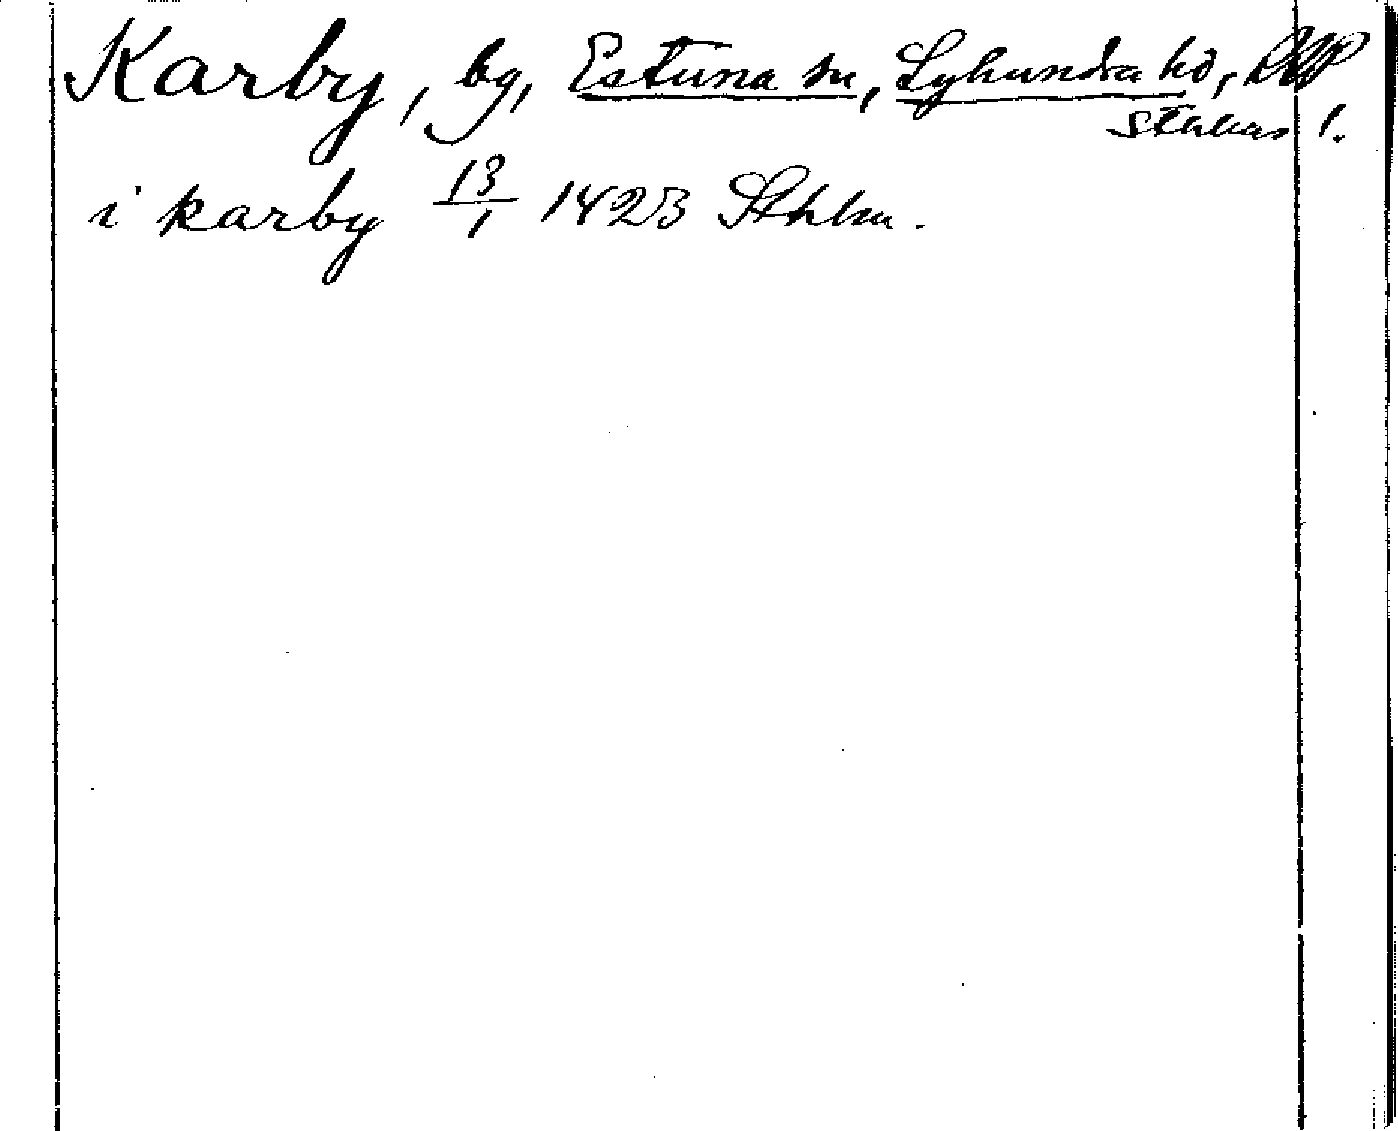 Karby, by, Estuna sn, Lyhundra hd,
Sthlms l.
i karby 13/1 1423 Sthlm.